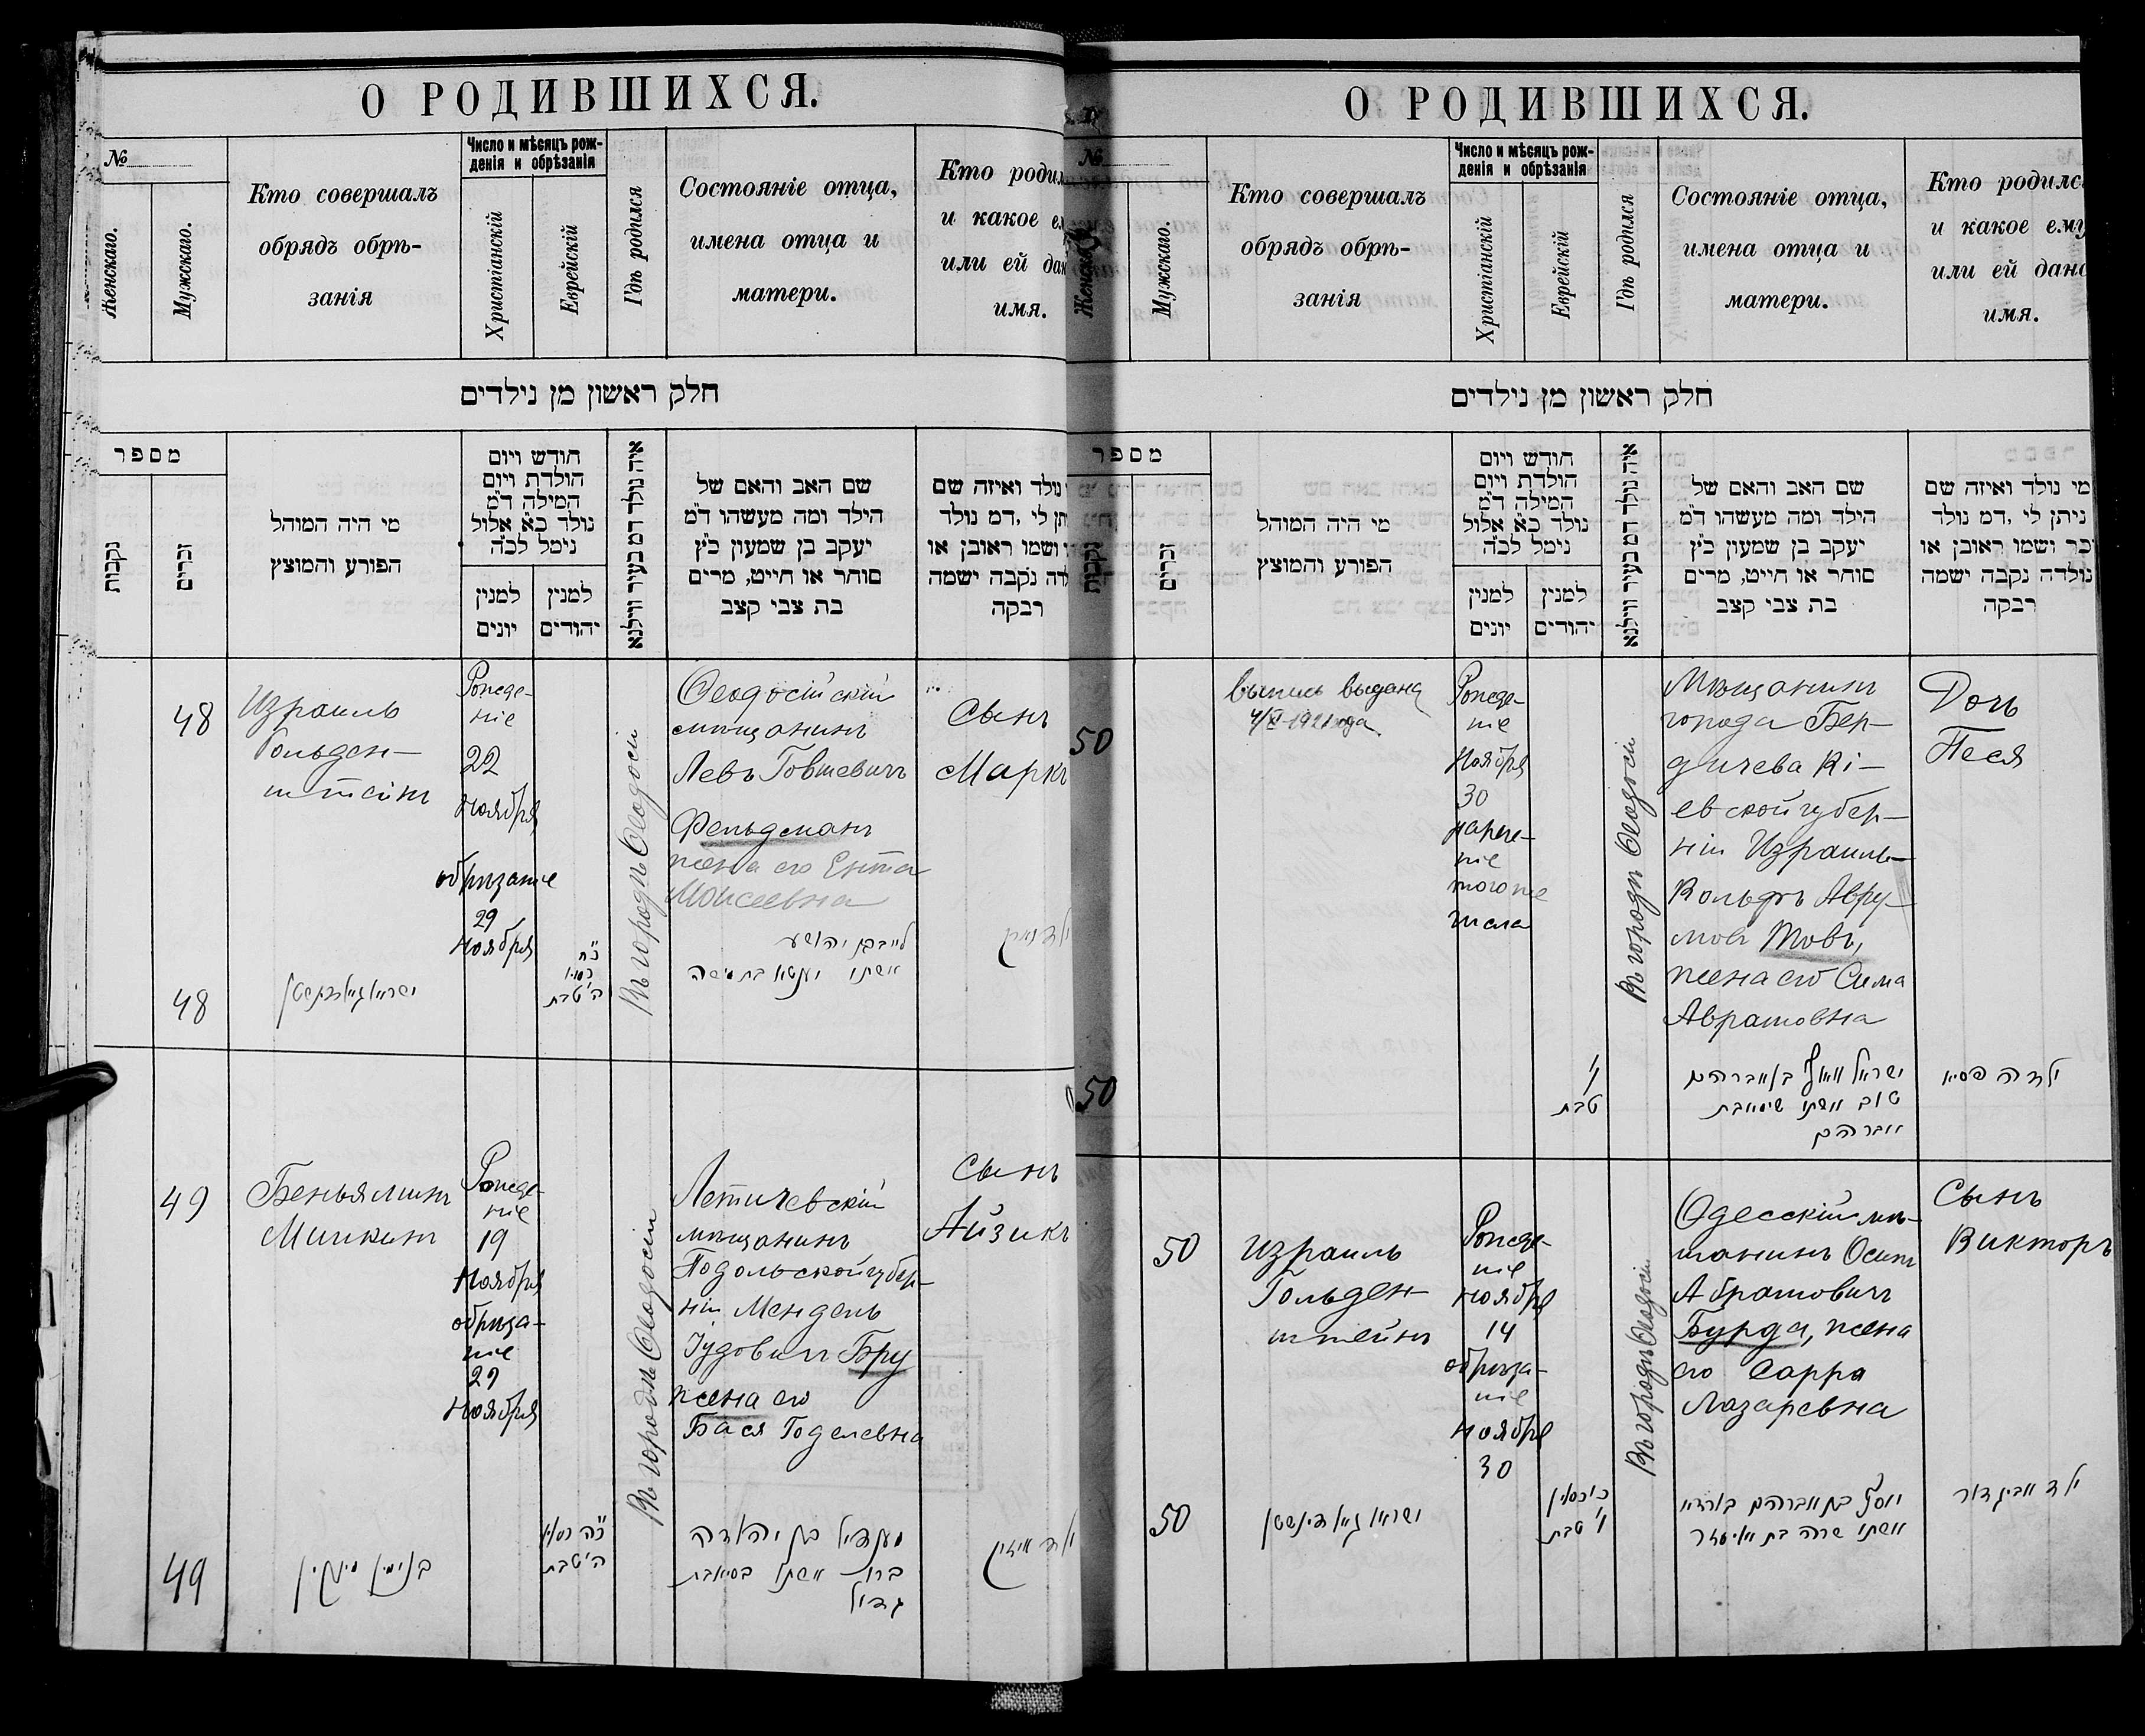 О РОДИВШИХСЯ.
№
Женскаго.
Мужскаго.
Кто совершалъ
обрядъ обрѣ-
занія
Число и мѣсяцъ рож-
денія и обрѣзанія
Христіанскій
Еврейскій
Гдѣ родился
Состояніе отца,
имена отца и
матери.
Кто родил
и какое е
или ей дан
имя.
חלק ראשון מן נילדים
מספר
נקבות
זכרים
מי היה המוהל
הפורע והמוצץ
חודש ויום
הולדת ויום
המילה ד״מ
נולד כ״א אלול
נימל לכ״ה
למנין
יונים
למנין
יהודים
איה נולד דמ בעיר ווילנא
שם האב והאם של
הילד ומה מעשהו ד״מ
יעקב בן שמעון כ״ץ
סוחר או חייט, מרים
בת צבי קצב
נולד ואיזה שם
תן לי ,דמ נולד
ושמו ראובן או
דה נקבה ישמה
רבקה
48
Израиль
Гольден-
штейнъ
Рожде-
ніе
22
Ноября
обрѣзаніе
29
Ноября
Въ городѣ Ѳеодосіи
Ѳеодосійскій
мѣщанинъ
Левъ Говшевичъ
Фельдманъ
жена его Ента
Моисеевна
Сынъ
Маркъ
48
ישראל גאלדנשטן
כ״ח
כסלו
ה׳ טבת
לייב בן יהושע
אשתו יענטא בת משה
49
Беньяминъ
Минкинъ
Рожде-
ніе
19
Ноября
обрѣза-
ніе
29
Ноября
Въ городѣ Ѳеодосіи
Летичевскій
мѣщанинъ
Подольской губер-
ніи Мендель
Іудовичъ Бру
жена его
Бася Годелевна
Сынъ
Айзикъ
49
בנימין מינקין
כ״ה כסלו
ה׳ טבת
מענדיל בן יהודה
ברו אשתו בסיא בת
גדיל
ילד אייזיק
О РОДИВШИХСЯ.
№
Женскаго
Мужскаго.
Кто совершалъ
обрядъ обрѣ-
занія
Число и мѣсяцъ рож-
денія и обрѣзанія
Христіанскій
Еврейскій
Гдѣ родился
Состояніе отца,
имена отца и
матери.
Кто родилс
и какое ему
или ей дано
имя.
חלק ראשון מן נילדים
מספר
נקבות
זכרים
מי היה המוהל
הפורע והמוצץ
חודש ויום
הולדת ויום
המילה ד״מ
נולד כ״א אלול
נימל לכ״ה
למנין
יונים
למנין
יהודים
איה נולד דמ בעיר ווילנא
שם האב והאם של
הילד ומה מעשהו ד״מ
יעקב בן שמעון כ״ץ
סוחר או חייט, מרים
בת צבי קצב
מי נולד ואיזה שם
ניתן לי ,דמ נולד
כר ושמו ראובן או
נולדה נקבה ישמה
רבקה
50
выпись выдана
1921 года
Рожде-
ніе
Ноября
30
нарече-
ніе
того же
числа
Въ городѣ Ѳеодосіи
Мѣщанинъ
города Бер-
дичева Кі-
евской губер-
ніи Израиль-
Вольфъ Авру-
мовъ Товъ,
жена его Сима
Аврамовна
Дочь
Песя
50
ו׳
טבת
ישראל וואלף בן אברהם
טוב אשתו שימא בת
אברהם
ילדה פסיא
50
Израиль
Гольден-
штейнъ
Рожде-
ніе
Ноября
14
обрѣза-
ніе
Ноября
30
Въ городѣ Ѳеодосіи
Одесскій мѣ-
щанинъ Осипъ
Абрамовичъ
Бурда, жена
его Сарра
Лазаревна
Сынъ
Викторъ
50
ישראל גאלדינשטן
כ׳ כסלו
ו׳ טבת
יוסף בן אברהם בורדא
אשתו שרה בת אליעזר
ילד אביגדור